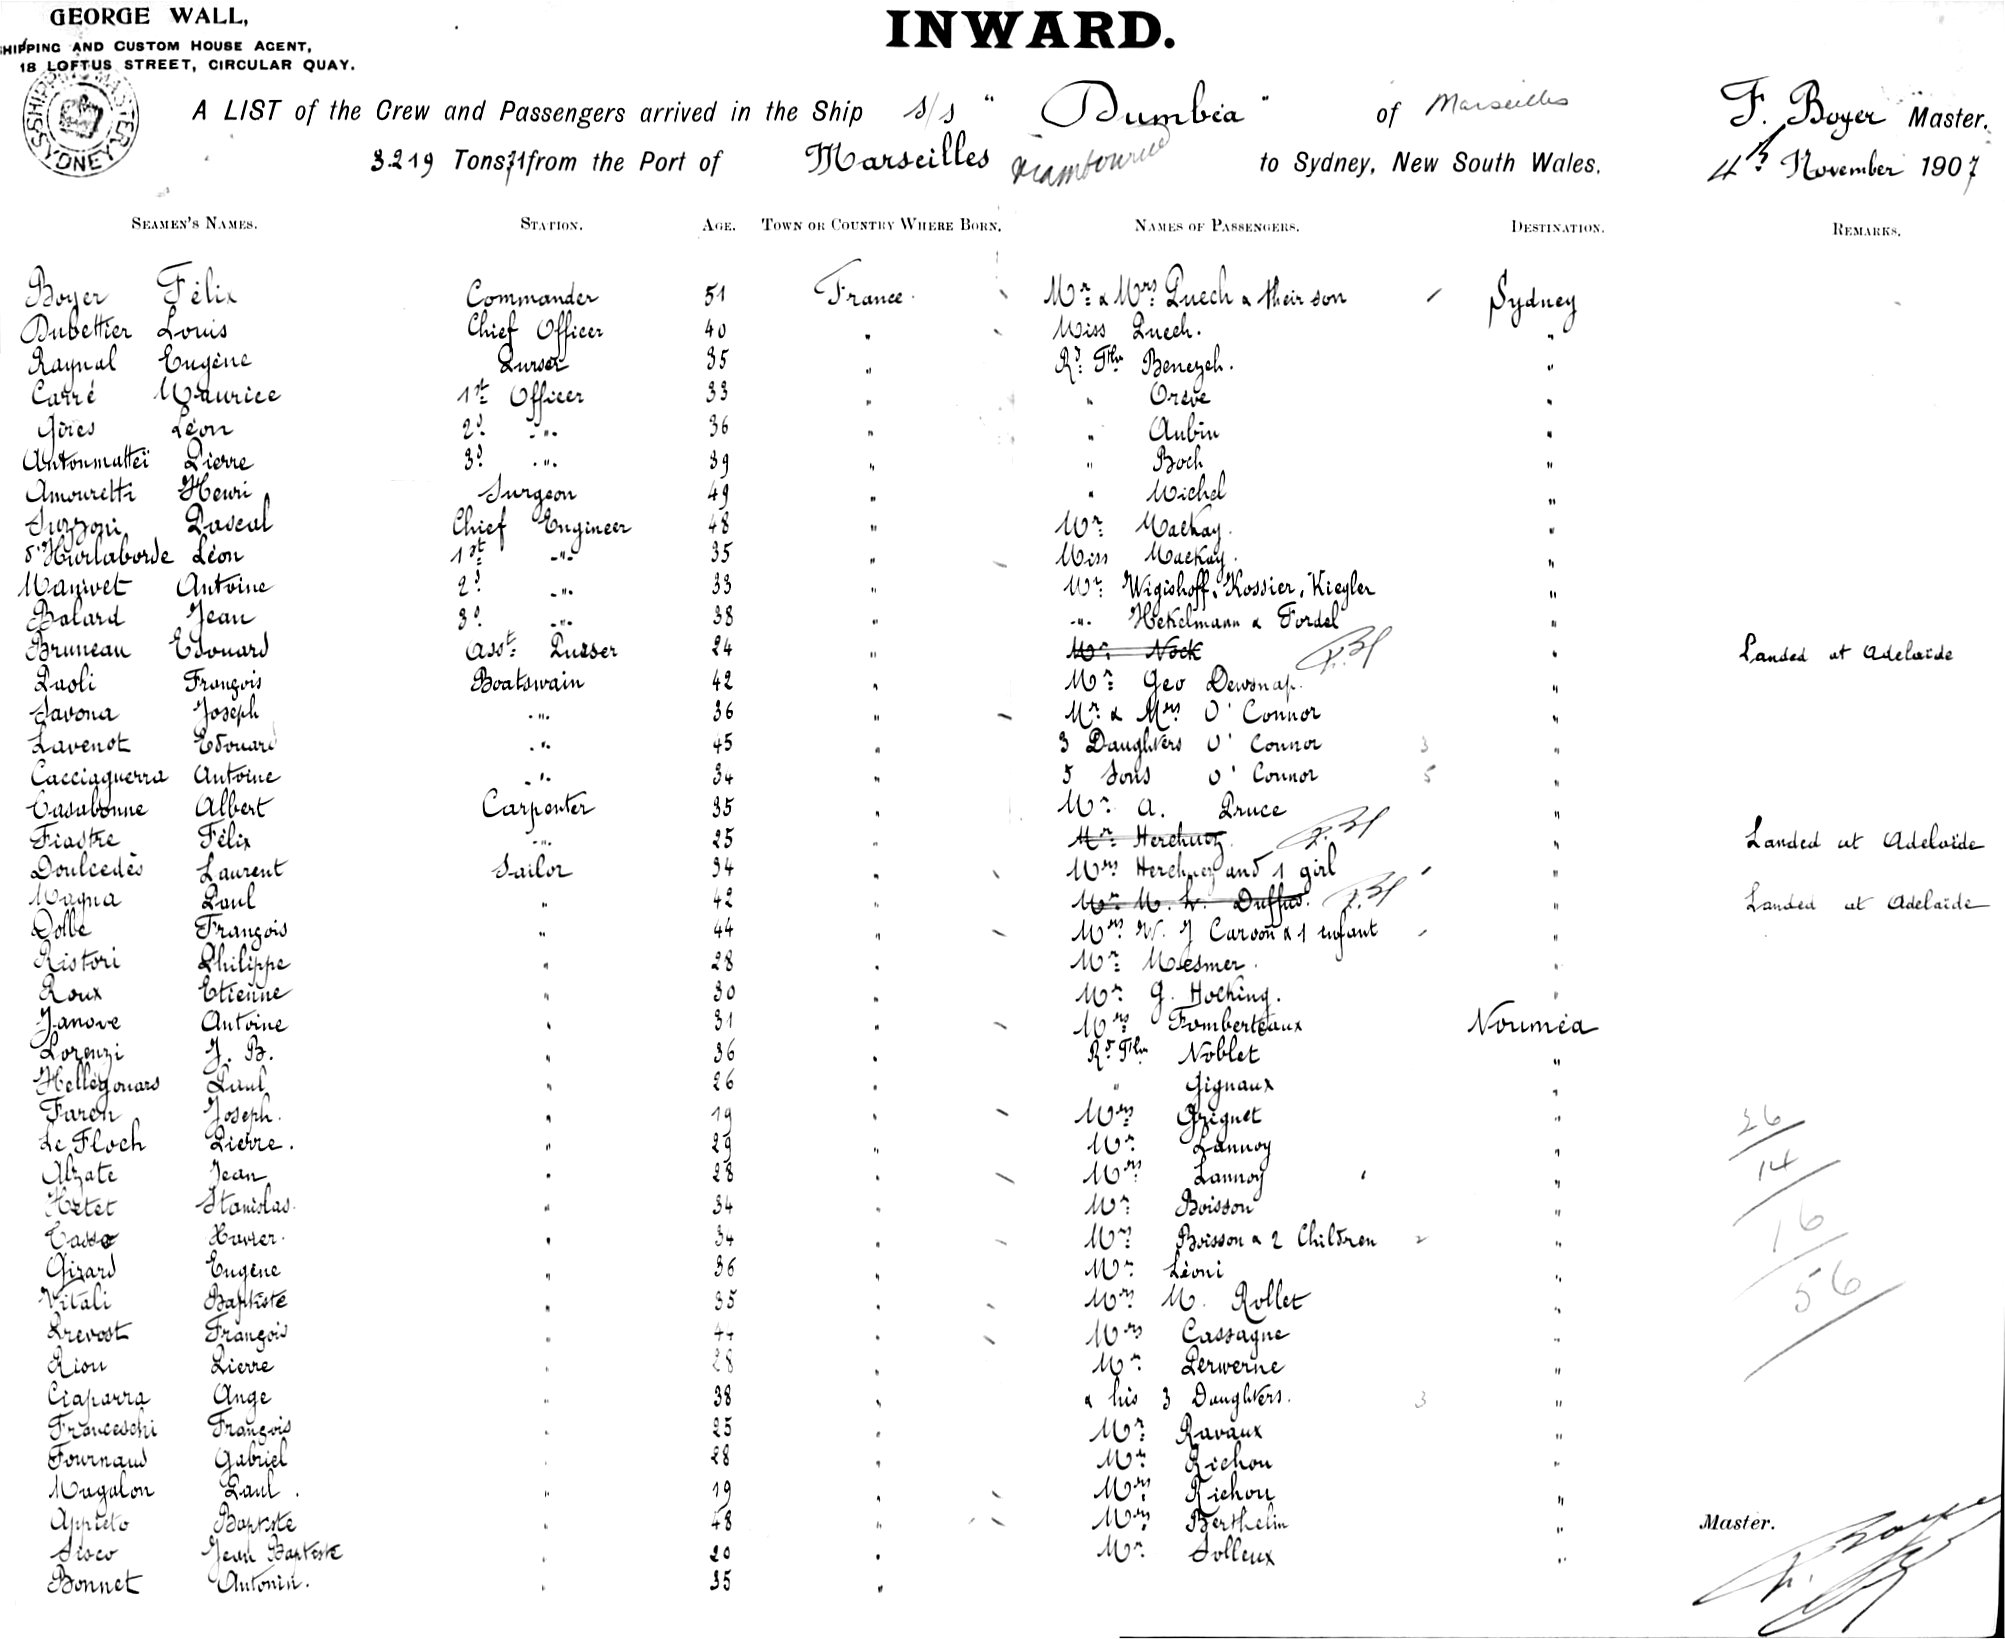 GEORGE WALL,
SHIPPING AND CUSTOM HOUSE AGENT,
18 LOFTUS STREET, CIRCULAR QUAY.
SHIPPING MASTER SYDNEY
INWARD.
A LIST of the Crew and Passengers arrived in the Ship s/s "Dumbea" of Marseilles F. Boyer Master.
3219 Tons, from the Port of Marseilles to Sydney, New South Wales. 4th November 1907
SEAMEN'S NAMES. STATION. AGE. TOWN OR COUNTRY WHERE BORN. NAMES OF PASSENGERS. DESTINATION. REMARKS.
Boyer Félix Commander 51 France. Mr & Mrs Puech & their son Sydney
Dubettier Louis Chief Officer 40 " Miss Puech. "
Raynal Eugène Purser 35 " Rd Fthr Benezeh. "
Carré Maurice 1st Officer 33 " " Orève "
Giries Léon 2d -"- 36 " " Aubin "
Antonmatteï Pierre 3d -"- 39 " " Boch "
Amouretti Henri Surgeon 49 " " Michel "
Suzzoni Pascal Chief Engineer 48 " Mr Mackay. "
d'Hurlaborde Léon 1st -"- 35 " Miss Mackay. "
Manivet Antoine 2d -"- 33 " Mr Wigishoff, Kossier, Kiegler "
Balard Jean 3d -"- 38 " -"- Hekelmann & Fordel "
Bruneau Edouard Asst Purser 24 " Mr Nock " Landed at Adelaide
Paoli François Boatswain 42 " Mr Geo Dewsnap. "
Savona Joseph -"- 36 " Mr & Mrs O'Connor "
Lavenot Edouard -"- 45 " 3 Daughters O'Connor 3 "
Cacciaguerra Antoine -"- 34 " 5 Sons O'Connor 5 "
Casabonne Albert Carpenter 35 " Mr A. Pruce "
Fiastre Félix -"- 25 " Mr Herchuez " Landed at Adelaïde
Doulcedès Laurent Sailor 34 " Mrs Herchuez and 1 girl "
Magna Paul " 42 " Mr M. W. Duffus. " Landed at Adelaïde
Dolbe François " 44 " Mrs W. J Carson & 1 infant "
Ristori Philippe " 28 " Mr Mesmer. "
Roux Etienne " 30 " Mr G. Hocking. "
Janove Antoine " 31 " Mrs Fomberteaux Nouméa
Lorenzi J. B. " 36 " Rd Fthr Noblet "
Hellégouars Paul " 26 " " Gignaux "
Faren Joseph. " 19 " Mrs Grignet "
Le Floch Pierre. " 29 " Mr Lannoy "
Alzate Jean " 28 " Mrs Lannoy "
Hetet Stanislas. " 34 " Mr Boisson "
Casso Xavier. " 34 " Mrs Boisson & 2 Children 2 "
Girard Eugène " 36 " Mr Léoni "
Vitali Baptiste " 35 " Mrs M. Rollet "
Prevost François " 44 " Mrs Cassagne "
Riou Pierre " 28 " Mr Perwerne "
Ciaparra Ange " 38 " & his 3 Daughters. 3 "
Franceschi François " 25 " Mr Ravaux "
Fournaud Gabriel " 28 " Mr Richou "
Magalon Paul. " 19 " Mrs Richou "
Appieto Baptiste " 48 " Mrs Berthelin "
Sisco Jean Baptiste " 20 " Mr Solleux "
Bonnet Antonin. " 35 "
26
14
16
56
Master.